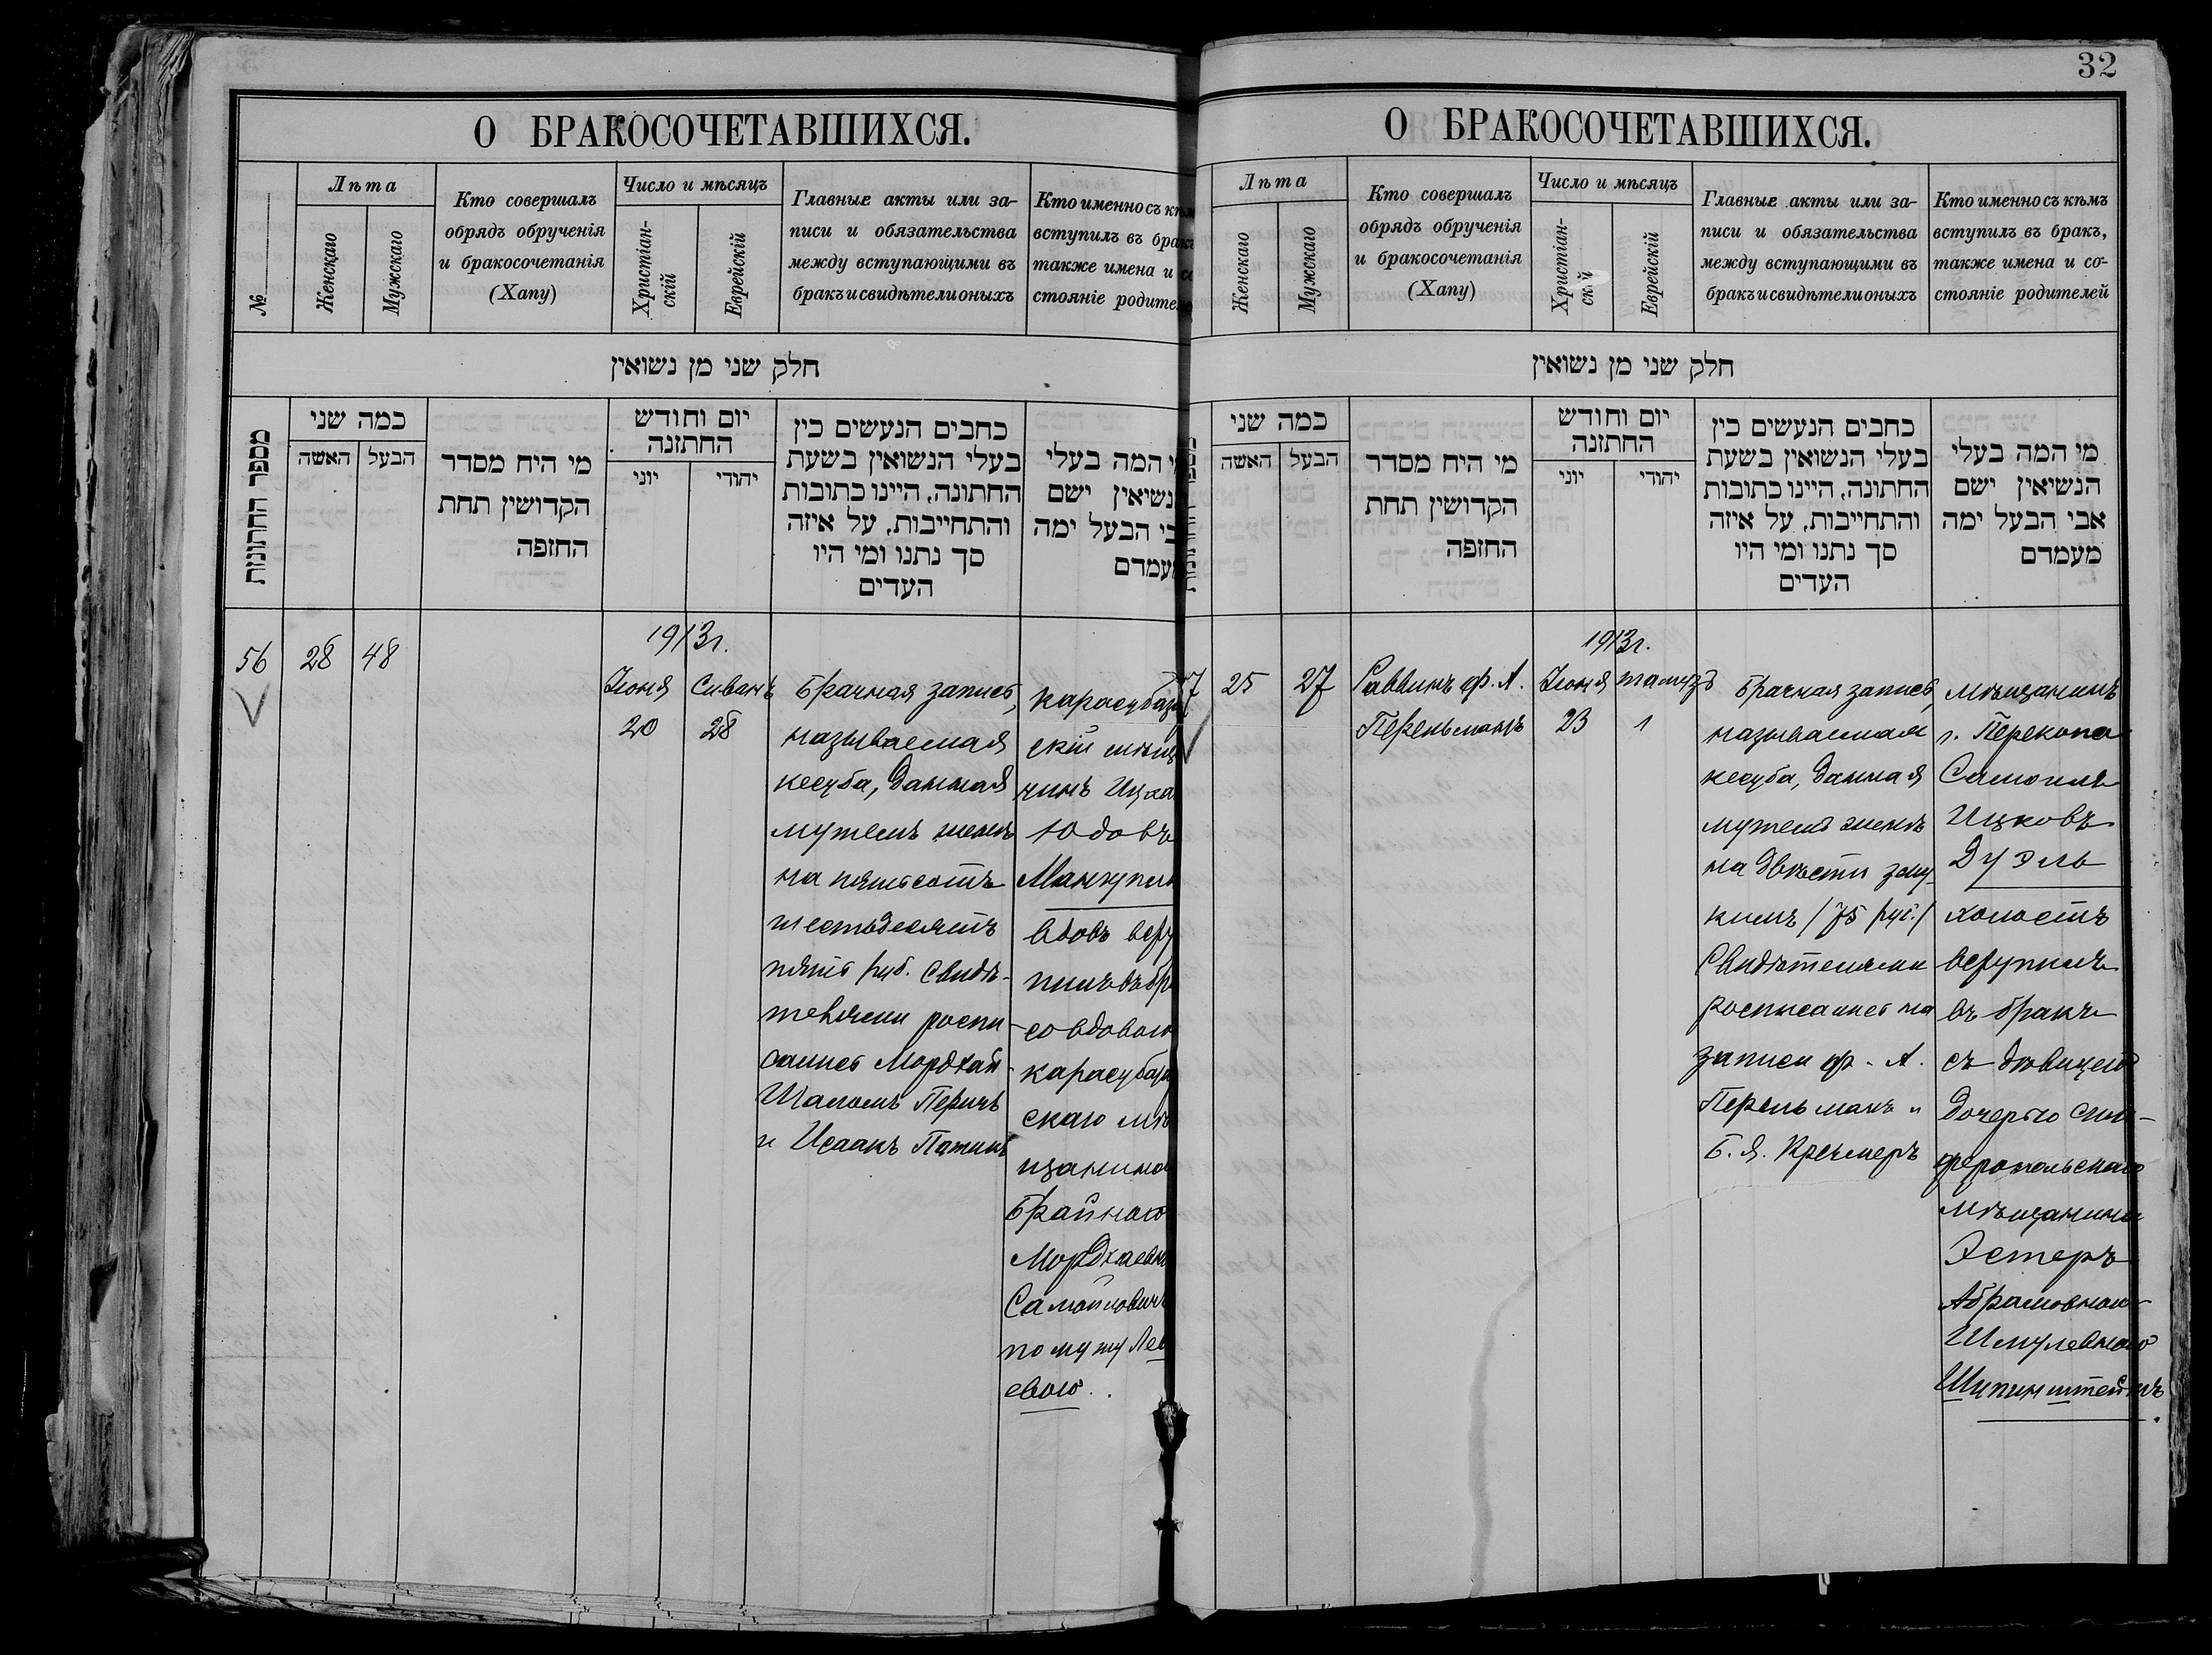 О БРАКОСОЧЕТАВШИХСЯ.
№
Лѣта
Женскаго
Мужскаго
Кто совершалъ
обрядъ обрученія
и бракосочетанія
(Хапу)
Число и мѣсяцъ
Христіан-
скій
Еврейскій
Главные акты или за-
писи и обязательства
между вступающими въ
бракъ и свидѣтели оныхъ
Кто именно съ кѣм
вступилъ въ бракъ
также имена и со
стояніе родителе
חלק שני מן נשואין
מספר החתונות
כמה שני
האשה
הבעל
מי היח מסדר
הקדושין תחת
החזפה
יום וחודש
החתזנה
יוני
יהודי
כחבים הנעשים כין
בעלי הנשואין בשעת
החתונה, היינו כתובות
והתחייבות, על איזה
סך נתנו ומי היו
העדים
י המה בעלי
נשיאין ישם
בי הבעל ימה
עמדם
56
28
48
1913 г.
Іюня
20
Сиванъ
28
Брачная запись,
называемая
кесуба, данная
мужемъ женѣ
на пятьсотъ
шестьдесятъ
пять руб. Свидѣ-
телями роспи-
сались Мордхай
Шаломъ Перичъ
и Исаакъ Патикъ
карасубаза
скій мѣщ
нинъ Ицха
Юдовъ
Манкупл
вдовъ всту
пилъ въ бр
со вдовою
карасубаза
скаго мѣ
щанина
Брайною
Мордхаевн
Самойлович
по мужу Лев
евою.
32
О БРАКОСОЧЕТАВШИХСЯ.
Лѣта
Женскаго
Мужскаго
Кто совершалъ
обрядъ обрученія
и бракосочетанія
(Хапу)
Число и мѣсяцъ
Христіан-
скій
Еврейскій
Главные акты или за-
писи и обязательства
между вступающими въ
бракъ и свидѣтели оныхъ
Кто именно съ кѣмъ
вступилъ въ бракъ,
также имена и со-
стояніе родителей
חלק שני מן נשואין
כמה שני
האשה
הבעל
מי היח מסדר
הקדושין תחת
החזפה
יום וחודש
החתזנה
יוני
יהודי
כחבים הנעשים כין
בעלי הנשואין בשעת
החתונה, היינו כתובות
והתחייבות, על איזה
סך נתנו ומי היו
העדים
מי המה בעלי
הנשיאין ישם
אבי הבעל ימה
מעמדם
7
25
27
Раввинъ ф. А.
Перельманъ
1913 г.
Іюня
23
тамузъ
1
Брачная запись,
называемая
кесуба, данная
мужемъ женѣ
на двѣсти зау-
кимъ /75 руб./
Свидѣтелями
росписались на
записи ф. А.
Перельманъ и
Б. Я. Кремеръ
Мѣщанинъ
г. Перекопа
Самоилъ
Ицковъ
Дуэль
холостъ
вступилъ
въ бракъ
съ дѣвицей
дочерью Сим-
феропольскаго
мѣщанина
Эстеръ
Абрамовною
Шмулевною
Шипинштейнъ.